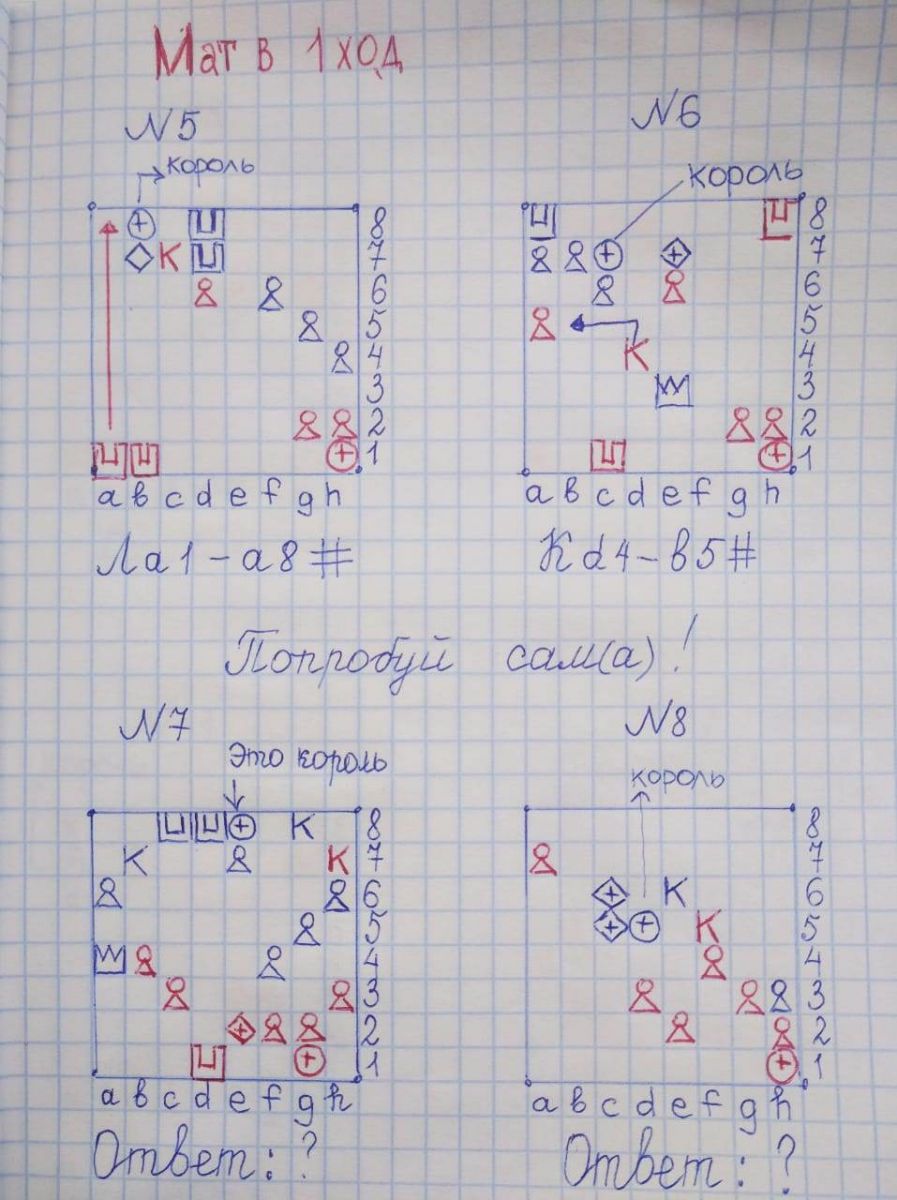 Мат в 1 ход
№5
король
8
7
6
5
4
3
2
1
К
a в c d e f g h
Ла1-а8#
№6
король
8
7
6
5
4
3
2
1
К
a в c d e f g h
Кd4-в5#
Попробуй сам(а)!
№7
Это король
8
7
6
5
4
3
2
1
К
К
К
a в c d e f g h
Ответ: ?
№8
король
8
7
6
5
4
3
2
1
К
К
a в c d e f g h
Ответ: ?